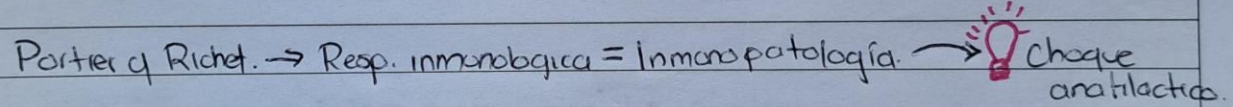 Portier y Richet. → Resp. inmunologica = Inmunopatología. → Choque
anafilactico.